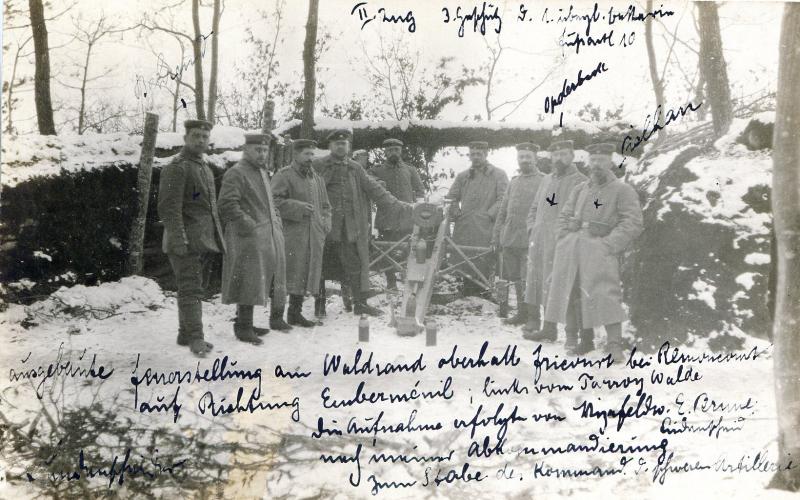 II. Zug 3. Geschütz d. 1. überpl. batterie
Fußartl 10
Opderbeck
ausgebaute Feuerstellung am Waldrand oberhalb Fricourt bei Remoncourt
auf Richtung Emberménil; links vom Parroy Walde
die Aufnahme erfolgte von Vizefeldw. E. Brune,
Lüdenscheid
nach meiner Abkommandierung
zum Stabe de. Kommand. d. schweren Artillerie
Lüdenscheider